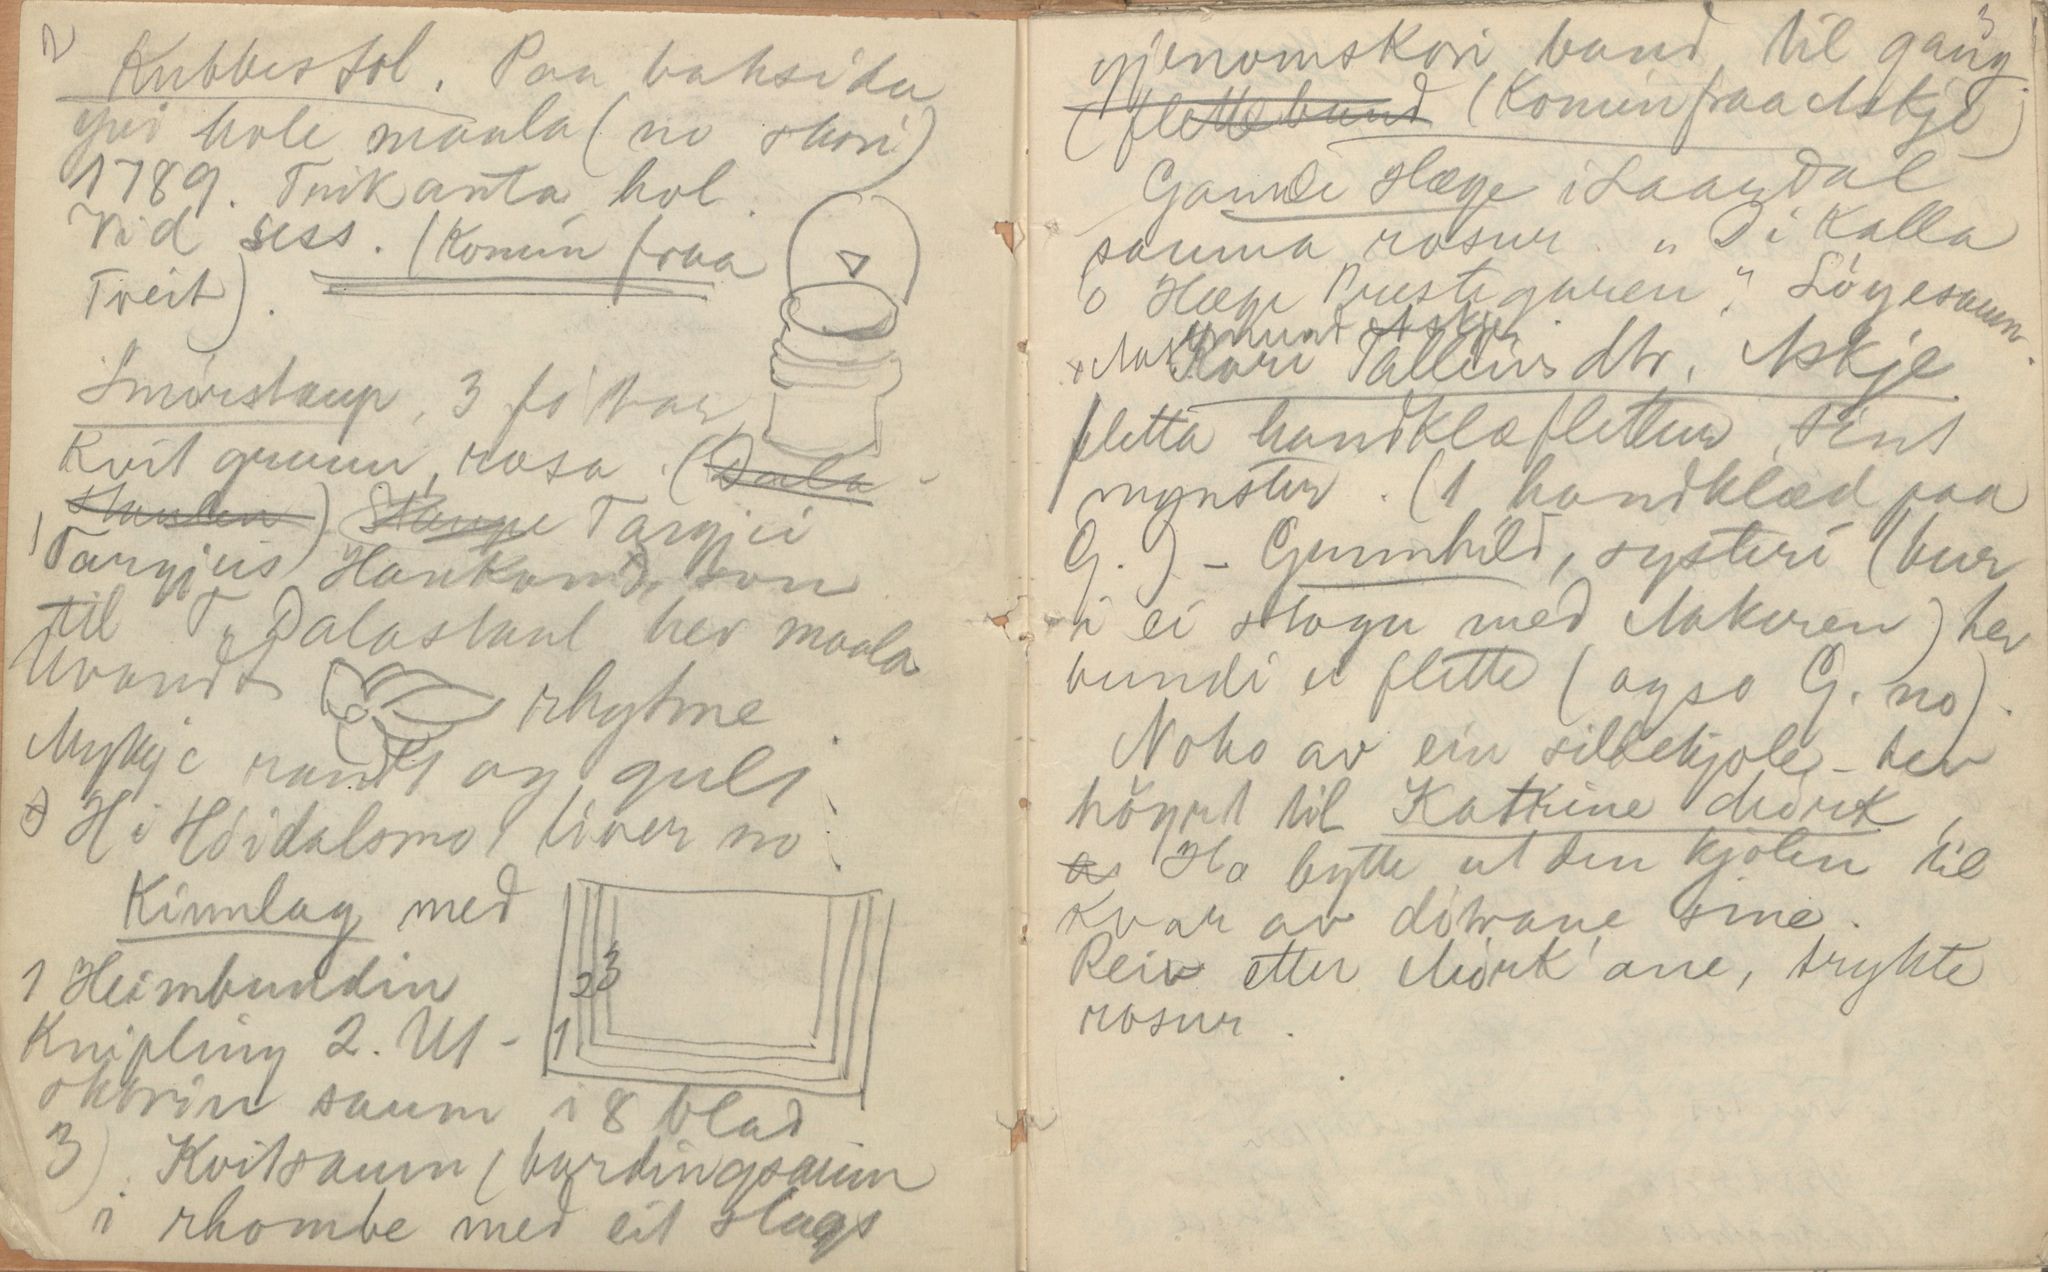 2
Kubbestol. Paa baksida
yvi hole maala (no skori)
1789. Trikanta hol.
Vid sess. (Komin fraa
Tveit).
Smørstaup, 3 föttar
Kvit grunn, rosa. (Dala-
stauden) Staupe Targjei
Targjeis Haakonson
til T. Dalastaul hev maala
Uvandt rhytme
Mykje raudt og gult
H i Höidalsmo, liver no
Kinnlag med
1 Heimbundin
Knipling 2. Ut-
skorin saum i 8 blad
3) Kvitsaum (bordingsaum
i rhombe med eit slags
1
2
3
3
gjenomskori band til gang
(fletteband (Komin fraa Askje)
Gamle Hæge i Laardal
sauma rosur. "Di kalla
o Hæge Prestegaren". Löyesaum.
Aasmund Askje
Kari Talleivsdtr. Askje
fletta handklæflettur, fint
mynster. (1 handklæd paa
G.) - Gunnhild, systeri (bur
i ei stogu med Aakeren) hev
bundi ei flette (ogso G. no).
Noko av ein silkekjole - hev
höyrt til Katrine Mörk,
Ho bytte ut den kjolen til
kvar av döttrane sine.
Reiv etter Mörk'ane, trykte
rosur.